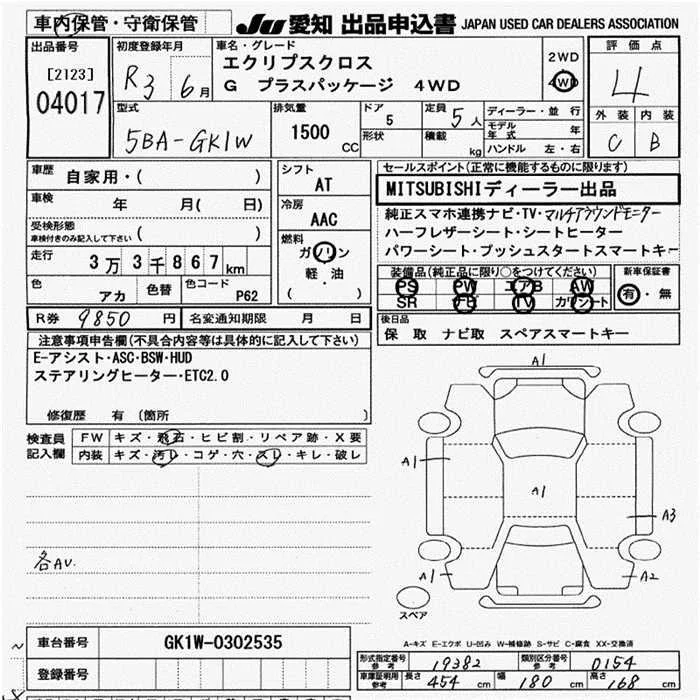 車内保管・守衛保管 JU 愛知 出品申込書 JAPAN USED CAR DEALERS ASSOCIATION
出品番号
[2123]
04017
初度登録年月
R3 6月
車名・グレード
エクリプスクロス
G プラスパッケージ 4WD
2WD
4WD
評価点
4
外装 内装
C B
型式
5BA-GK1W
排気量
1500 CC
ドア
5
形状
定員
5人
積載
kg
ディーラー・並行
モデル年式 年
ハンドル 左・右
車歴 自家用・( )
車検 年 月( 日)
受検形態
車検付きのみ記入して下さい ( )
走行 3万3千867km
色 アカ 色替 色コード P62
シフト
AT
冷房
AAC
燃料
ガソリン
軽・油
( )
セールスポイント(正常に機能するものに限ります)
MITSUBISHIディーラー出品
純正スマホ連携ナビ・TV・マルチアラウンドモニター
ハーフレザーシート・シートヒーター
パワーシート・プッシュスタートスマートキー
装備品(純正品に限り○をつけてください)
PS PW エアB AW
SR ナビ TV カワシート
新車保証書
有・無
R券 9850 円 名変通知期限 月 日
後日品
保 取 ナビ取 スペアスマートキー
注意事項申告欄(不具合内容等は具体的に記入して下さい)
E-アシスト・ASC・BSW・HUD
ステアリングヒーター・ETC2.0
修復歴 有 (箇所
検査員記入欄
FW キズ・飛石・ヒビ割・リペア跡・X要
内装 キズ・汚レ・コゲ・穴・スレ・キレ・破レ
各AU.
A1
A1
A1
A3
A1
A2
スペア
A-キズ E-エクボ U-凹み W-補修跡 S-サビ C-腐食 XX-交換済
車台番号 GK1W-0302535
登録番号
形式指定番号参考 19382 類別区分番号参考 0154
車庫証明用参考 長さ 454 cm 幅 180 cm 高さ 168 cm